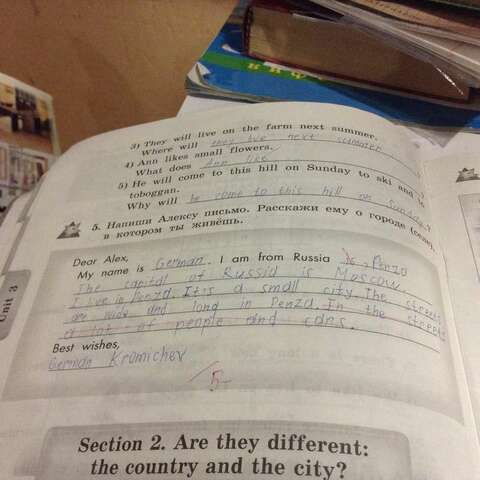 3) They will live on the farm next summer.
Where will they live next summer
4) Ann likes small flowers.
What does Ann like
5) He will come to this hill on Sunday to ski and to
toboggan.
Why will he come to this hill on Sunday?
5. Напиши Алексу письмо. Расскажи ему о городе (селе),
в котором ты живёшь.
Dear Alex,
My name is German. I am from Russia Penza
The capital of Russia is Moscow.
I live in Penza. It's a small city. The streets
are wide and long in Penza. In the streets
a lot of people and cars.
Best wishes,
German Kromichev
5-
Unit 3
Section 2. Are they different:
the country and the city?